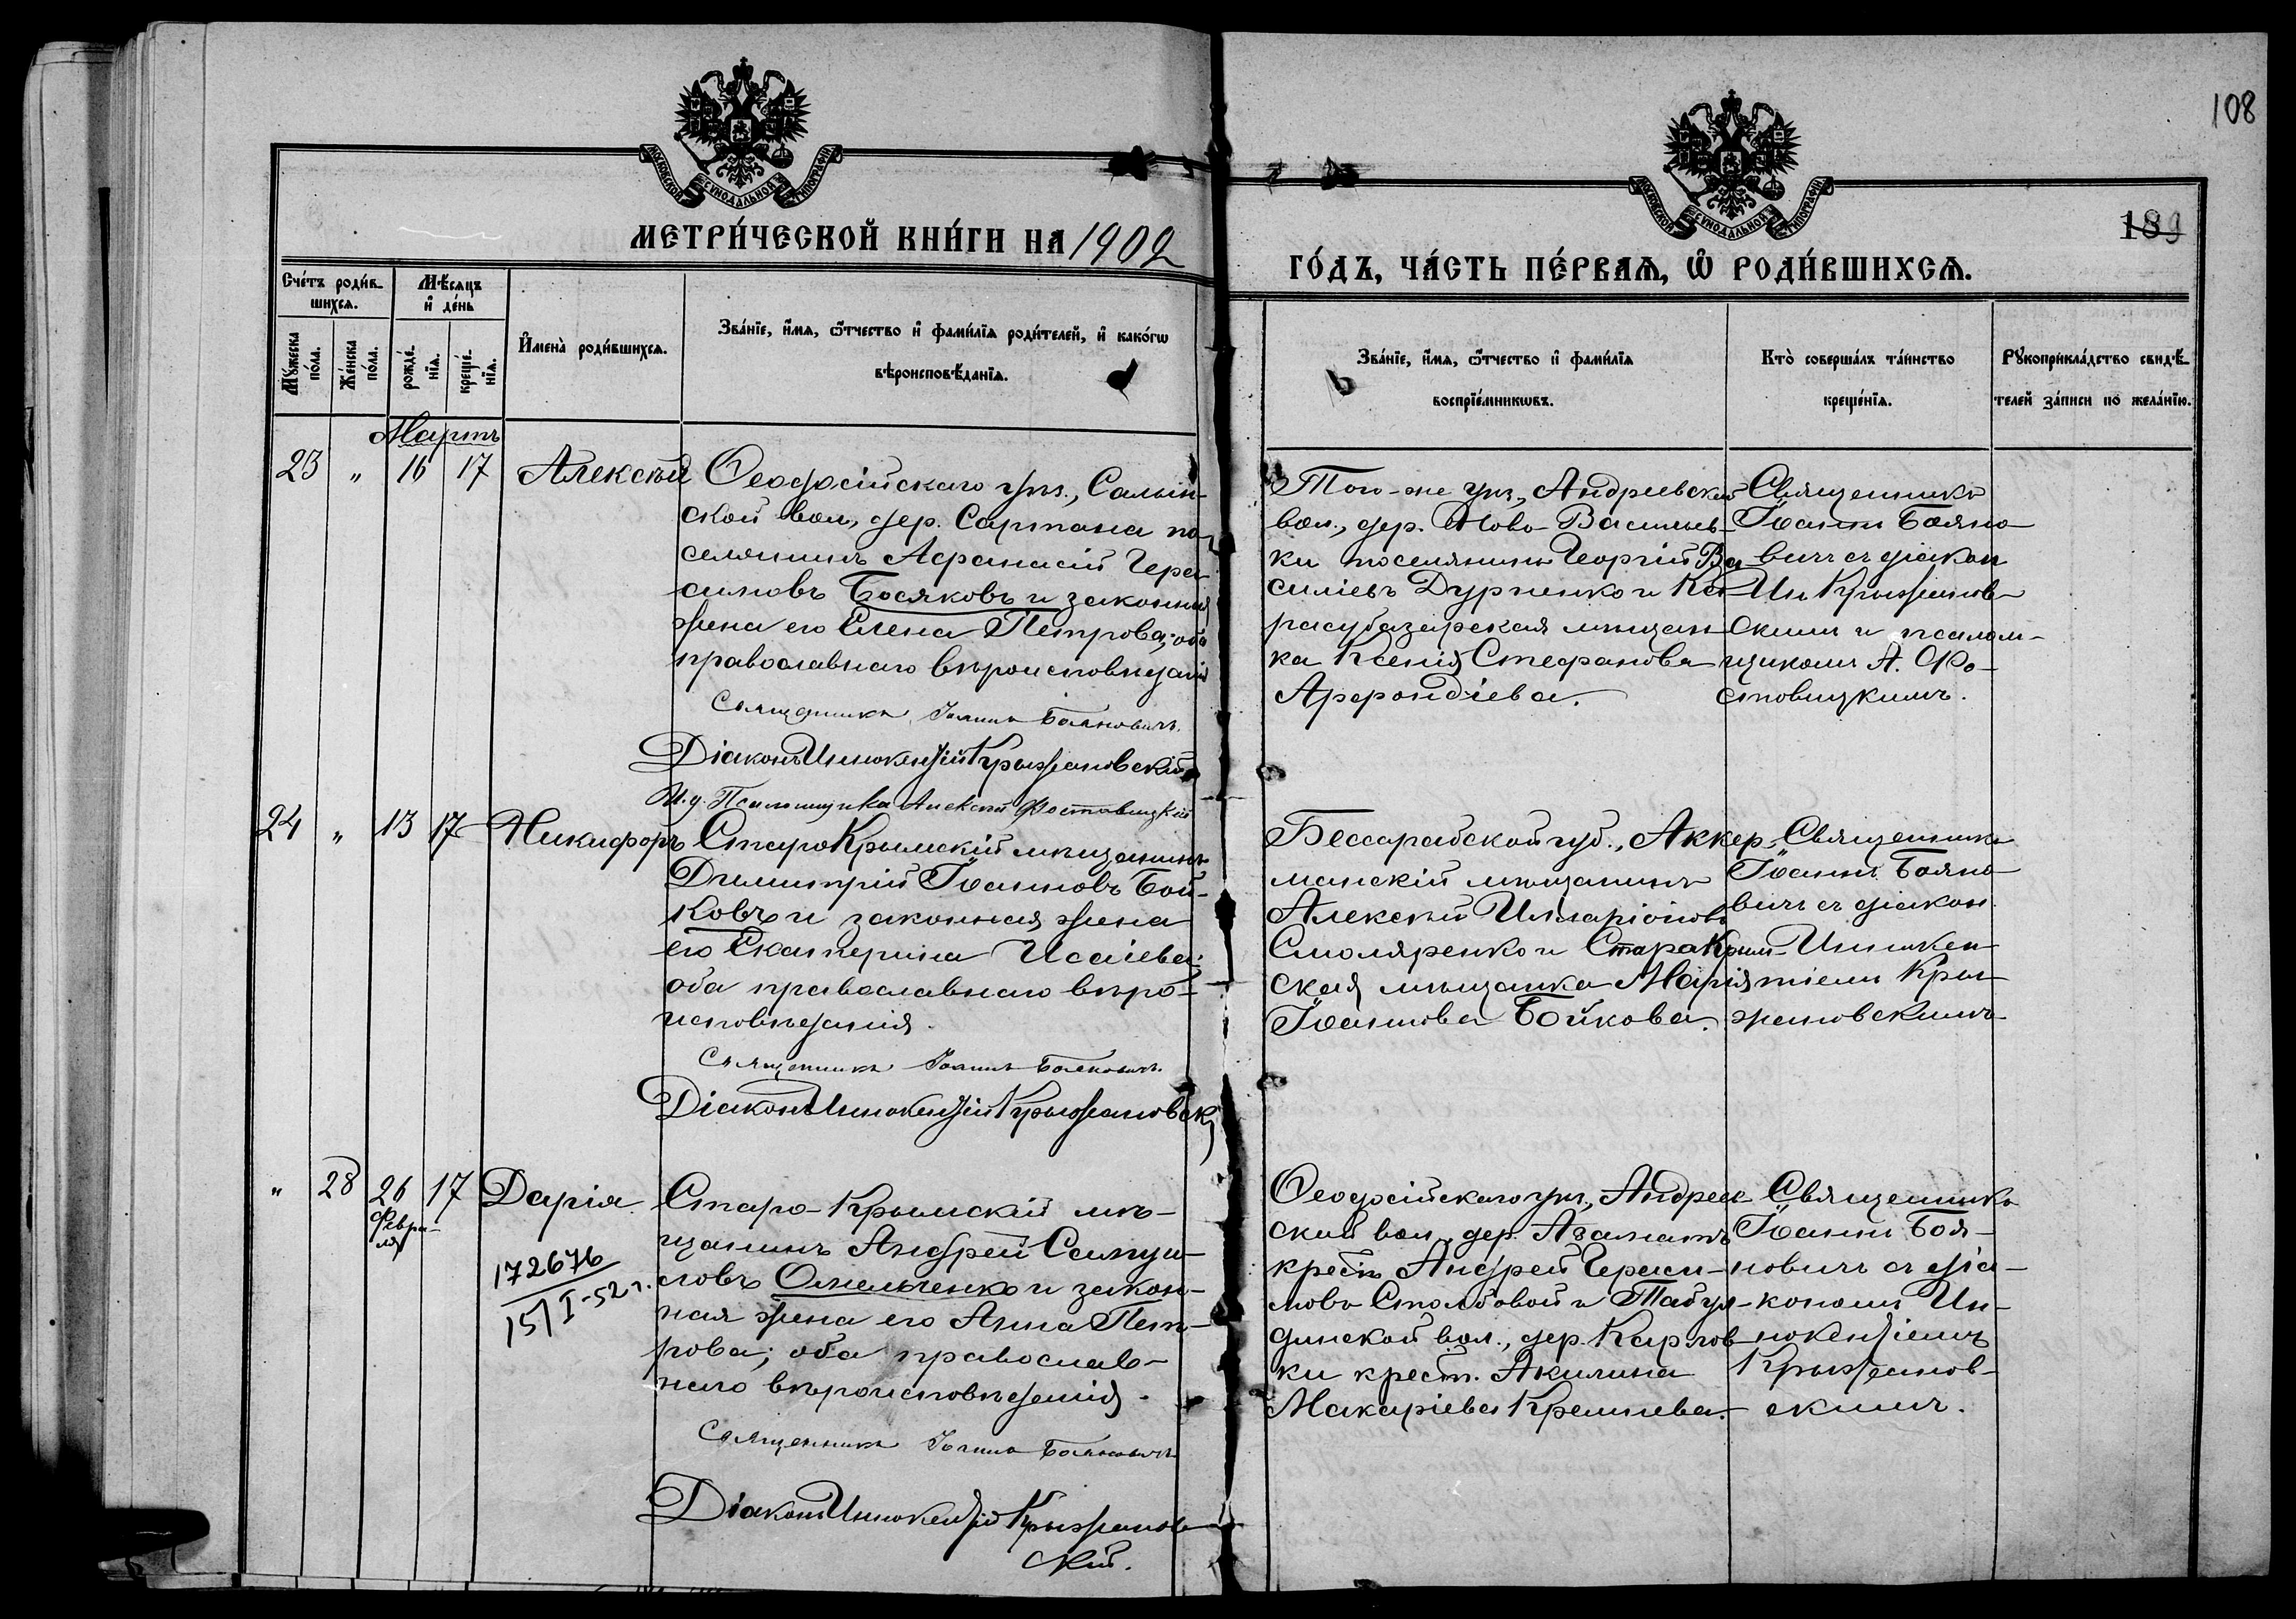 108
МОСКОВСКОЙ СѴНОДАЛЬНОЙ ТИПОГРАФІИ
МОСКОВСКОЙ СѴНОДАЛЬНОЙ ТИПОГРАФІИ
189
МЕТРИ́ЧЕСКОЙ КНИ́ГИ НА 1902
ГО́ДЪ, ЧА́СТЬ ПЕ́РВАЯ, Ѡ҆ РОДИ́ВШИХСЯ.
Сче́тъ роди́в-
шихся.
Мѣ́сяцъ
и҆ де́нь
Мꙋ́жеска
по́ла.
Же́нска
по́ла.
рожде́-
нїя.
креще́-
нїя.
И҆мена̀ роди́вшихся.
Зва́нїе, и҆́мя, ѻ҆́тчество и҆ фами́лїя роди́телей, и҆ како́гѡ
вѣроисповѣ́данїя.
Зва́нїе, и҆́мя, ѻ҆́тчество и҆ фами́лїя
воспрїе́мникѡвъ.
Кто̀ соверша́лъ та́инство
креще́нїя.
Рꙋкоприкла́дство свидѣ́-
телей за́писи по жела́нїю.
Мартъ
23 " 16 17 Алексѣй
Ѳеодосійскаго уѣз., Салын-
ской вол., дер. Сартана по-
селянинъ Афанасій Гера-
симовъ Босяковъ и законная
жена его Елена Петрова; оба
православнаго вѣроисповѣданія
Священникъ Іоаннъ Бояновичъ.
Діаконъ Иннокентій Крыжановскій
И. д. Псаломщика Алексѣй Фостовицкій
Того-же уѣз., Андреевской
вол., дер. Ново-Васильев-
ки поселянинъ Георгій Ва-
силіевъ Дурненко и Ка-
расубазарская мѣщан-
ка Ксенія Стефанова
Арфондіева.
Священникъ
Іоаннъ Бояно-
вичъ съ діакон.
Ин. Крыжанов-
скимъ и псалом-
щикомъ А. Фо-
стовицкимъ.
24 " 13 17 Никифоръ
СтароКрымскій мѣщанинъ
Димитрій Іоанновъ Бой-
ковъ и законная жена
его Екатерина Исаіева:
оба православнаго вѣро-
исповѣданія.
Священникъ Іоаннъ Бояновичъ.
Діаконъ Иннокентій Крыжановскій
Бессарабской губ., Аккер-
манскій мѣщанинъ
Алексѣй Илларіоновъ
Смоляренко и СтароКрым-
ская мѣщанка Марія
Іоаннова Бойкова.
Священникъ
Іоаннъ Бояно-
вичъ съ діакон.
Иннокен-
тіемъ Кры-
жановскимъ
" 28 26 17 Дарія
Февра-
ля
172676
15/I-52 г.
Старо-Крымскій мѣ-
щанинъ Андрей Самуи-
ловъ Омельченко и закон-
ная жена его Анна Пет-
рова; оба православ-
наго вѣроисповѣданія.
Священникъ Іоаннъ Бояновичъ
Діаконъ Иннокентій Крыжанов-
скій.
Ѳеодосійскаго уѣз., Андреев-
ской вол., дер. Азаматъ
крест. Андрей Гераси-
мовъ Столбовой и Табул-
динской вол., дер. Карлов-
ки крест. Акилина
Макаріева Кремнева.
Священникъ
Іоаннъ Боя-
новичъ съ діа-
кономъ Ин-
нокентіемъ
Крыжанов-
скимъ.